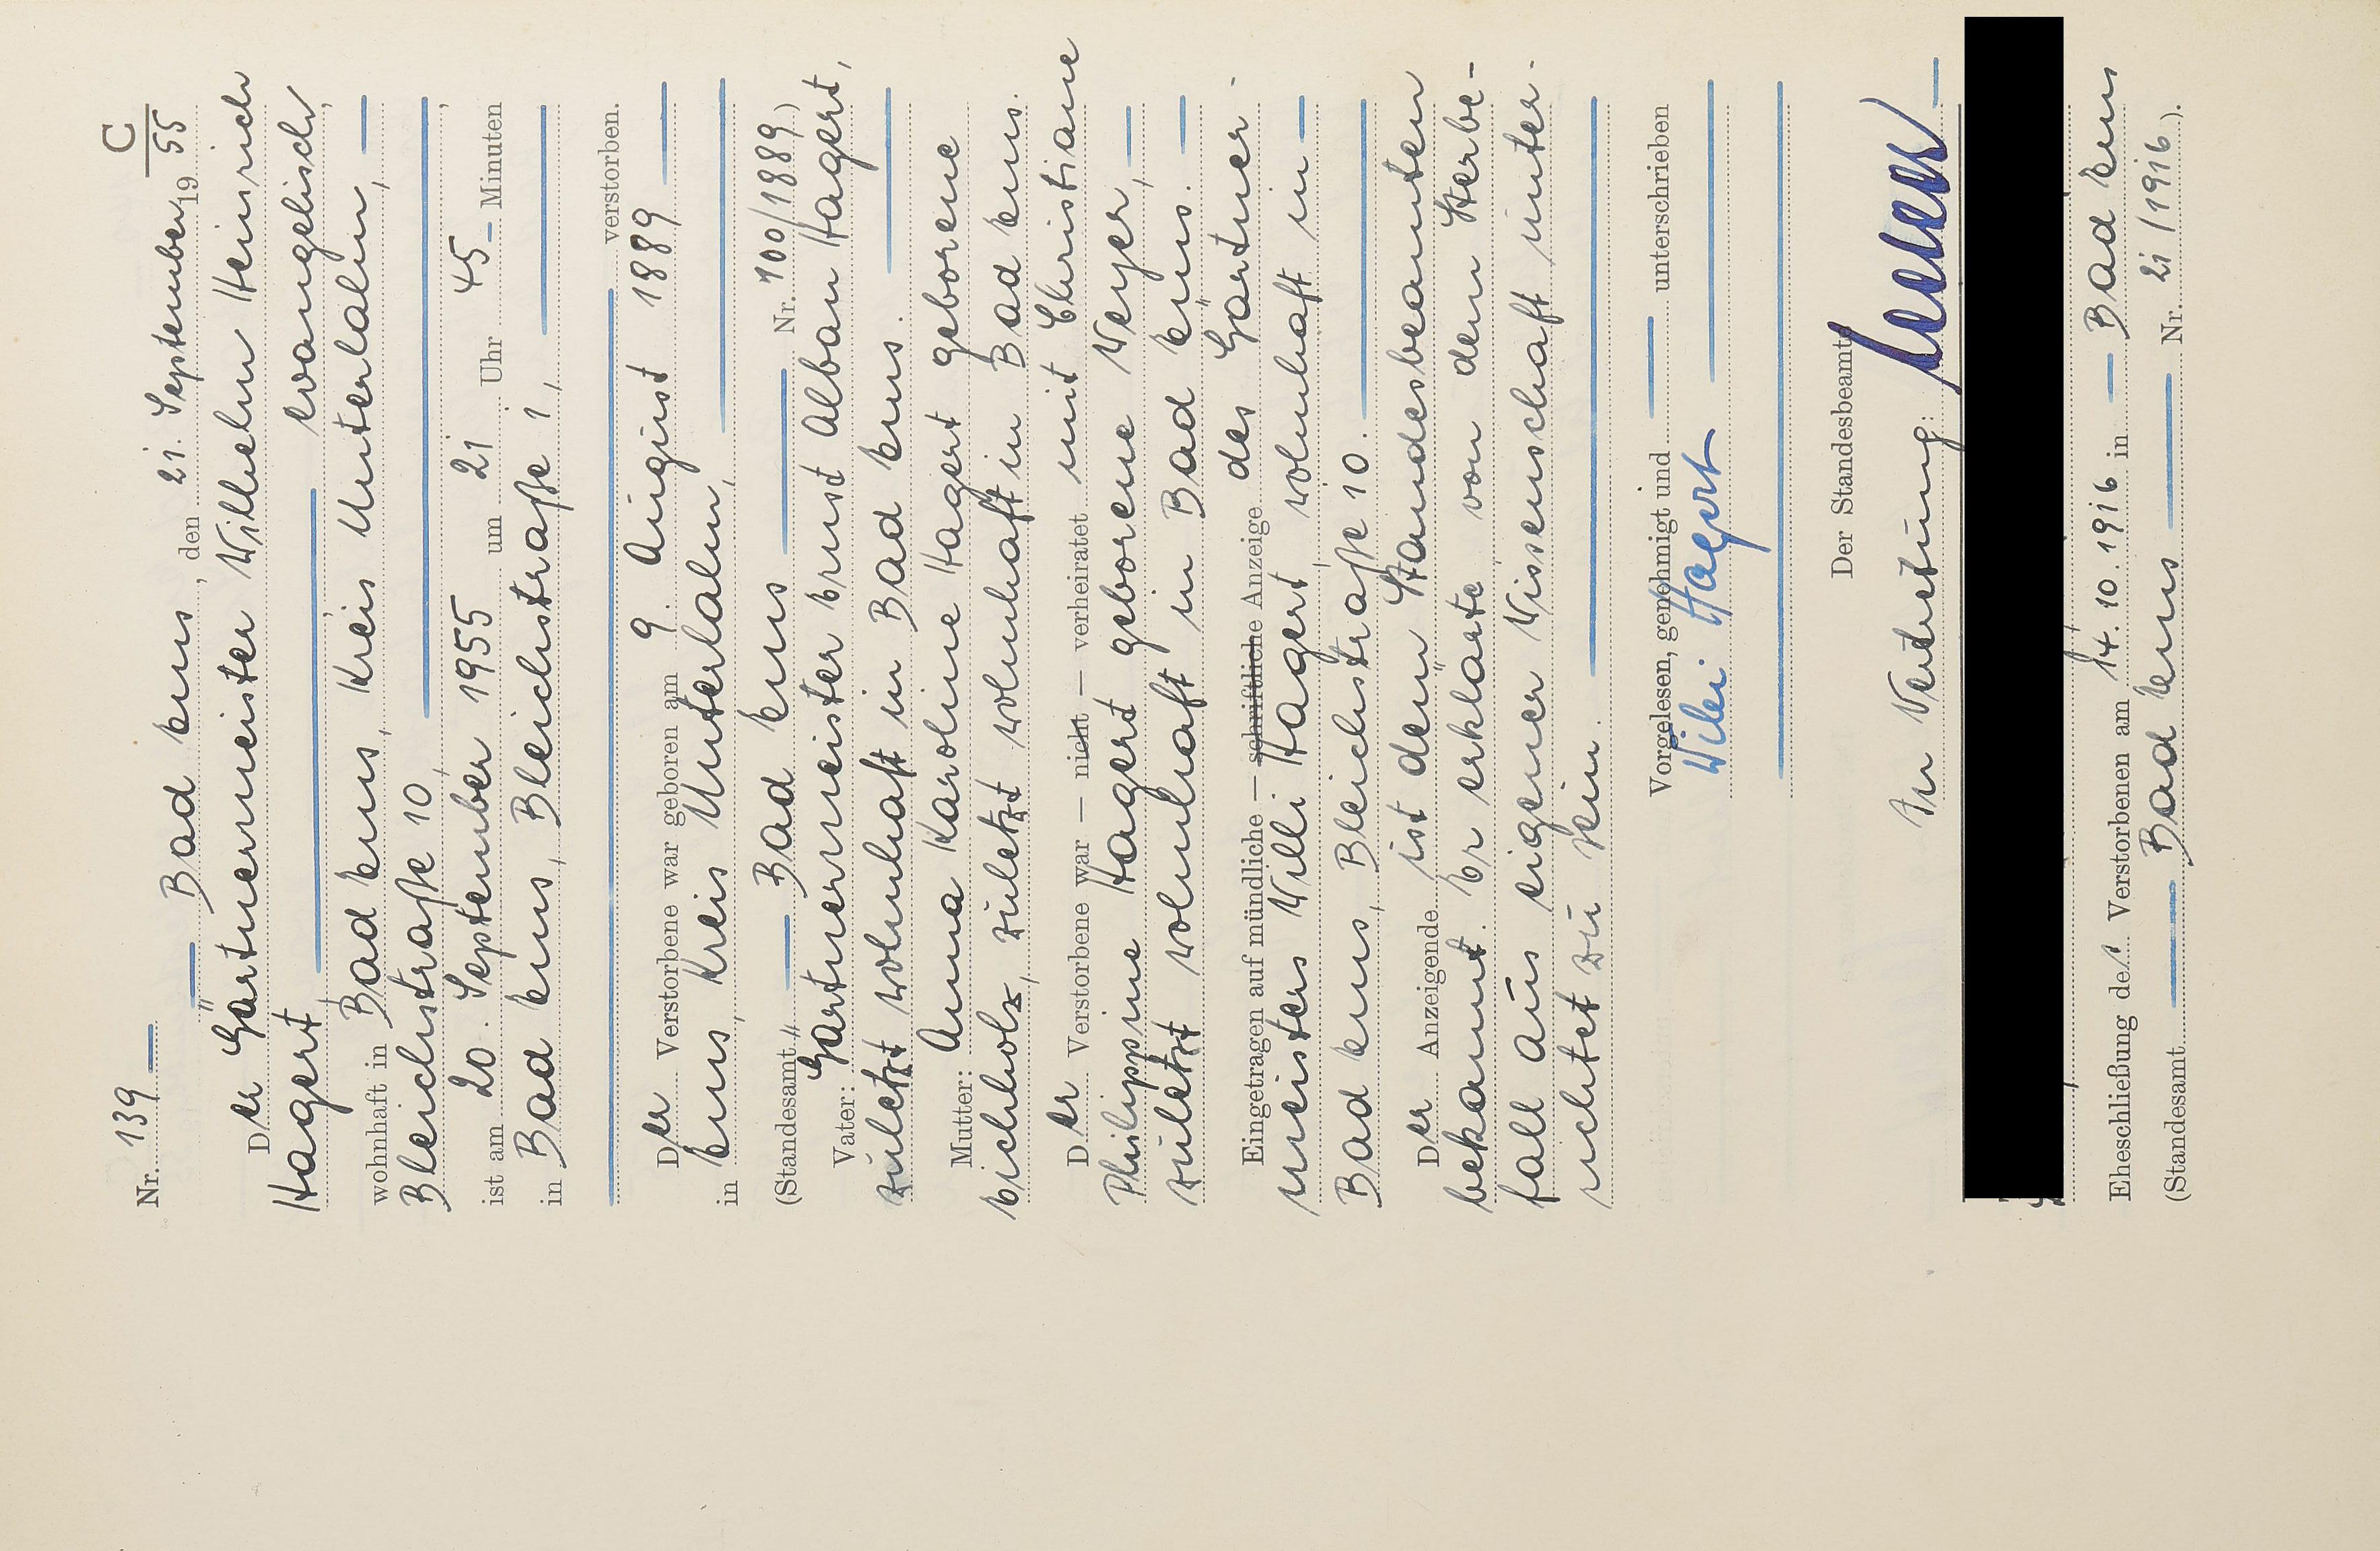 C
Nr. 139
Bad Ems, den 21. September 1955
Der Gärtnermeister Wilhelm Heinrich
Hagert, evangelisch,
wohnhaft in Bad Ems, Kreis Unterlahn,
Bleichstraße 10,
ist am 20. September 1955 um 21 Uhr 45 Minuten
in Bad Ems, Bleichstraße 1,
verstorben.
Der Verstorbene war geboren am 9. August 1889
in Ems, Kreis Unterlahn,
(Standesamt Bad Ems Nr. 100/1889)
Vater: Gärtnermeister Ernst Alban Hagert,
zuletzt wohnhaft in Bad Ems.
Mutter: Anna Karoline Hagert geborene
Eichholz, zuletzt wohnhaft in Bad Ems.
Der Verstorbene war — nicht — verheiratet mit Christiane
Philippine Hagert geborene Weyer,
zuletzt wohnhaft in Bad Ems.
Eingetragen auf mündliche — schriftliche Anzeige des Gärtner-
meisters Willi Hagert, wohnhaft in
Bad Ems, Bleichstraße 10.
Der Anzeigende ist dem Standesbeamten
bekannt. Er erklärte von dem Sterbe-
fall aus eigener Wissenschaft unter-
richtet zu sein.
Vorgelesen, genehmigt und unterschrieben
Willi Hagert
Der Standesbeamte
In Vertretung:
Eheschließung des Verstorbenen am 14.10.1916 in Bad Ems
(Standesamt Bad Ems Nr. 21/1916).